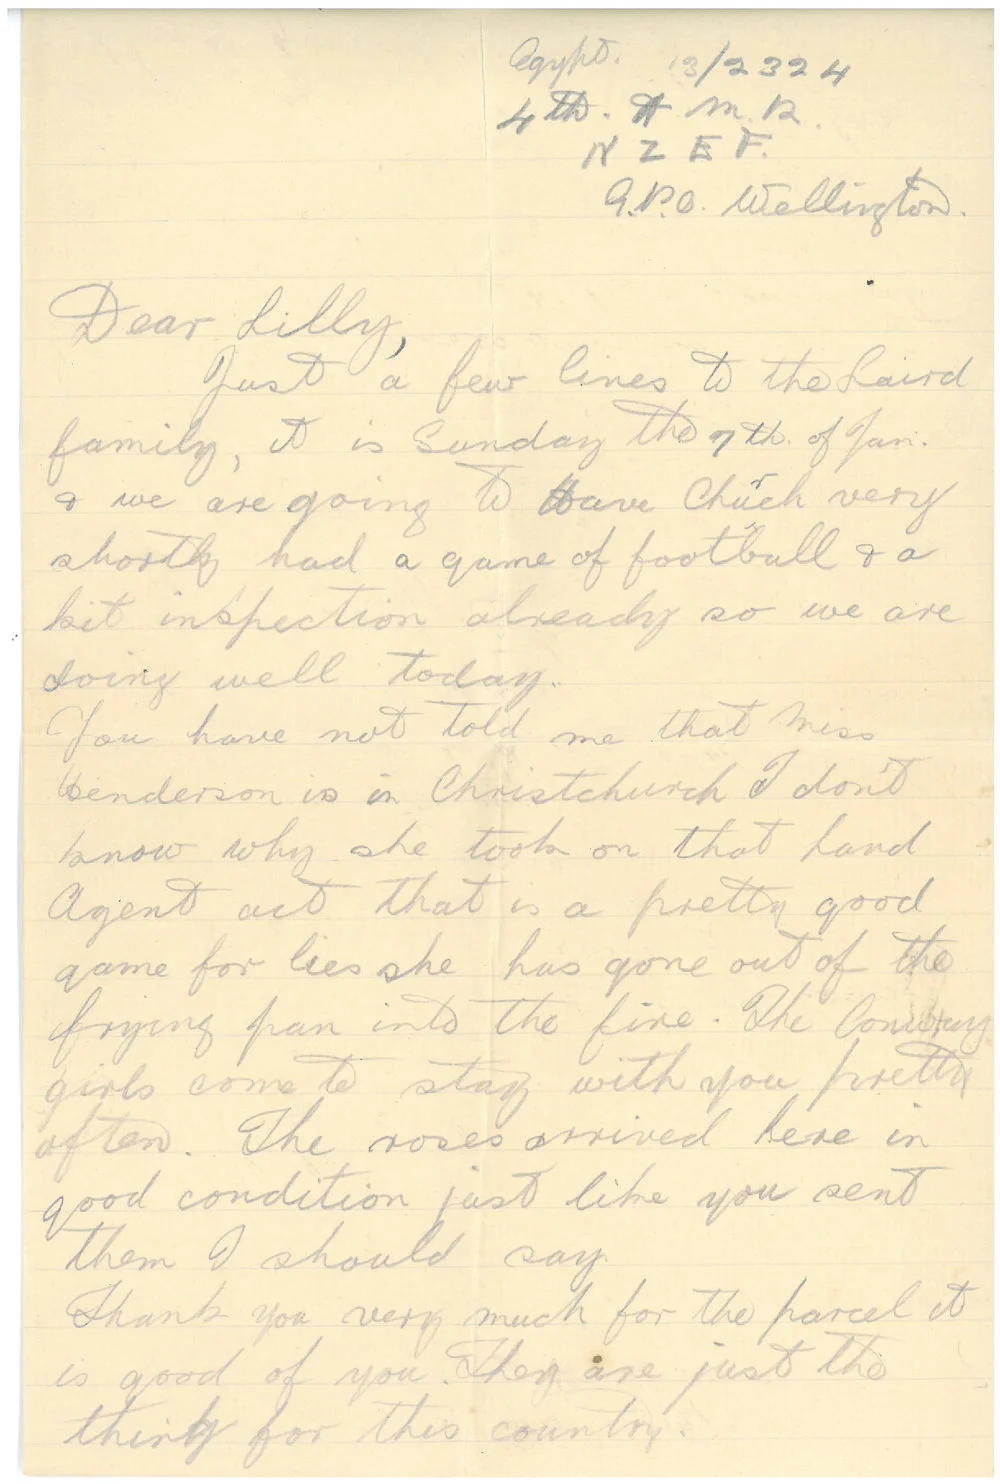 Egypt. 13/2324
4th. A. M. R.
N Z E F.
G.P.O. Wellington.
Dear Lilly,
Just a few lines to the Laird
family, it is Sunday the 7th. of Jan.
& we are going to Have Chuch very
shortly had a game of football & a
kit inspection already so we are
doing well today.
You have not told me that Miss
Henderson is in Christchurch I don't
know why she took on that Land
Agent act that is a pretty good
game for lies she has gone out of the
frying pan into the fire. The
girls come to stay with you pretty
often. The roses arrived here in
good condition just like you sent
them I should say.
Thank you very much for the parcel it
is good of you. They are just the
thing for this country.